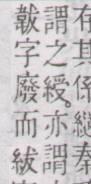 存其係
謂之綬。亦謂
韍字廢而紱